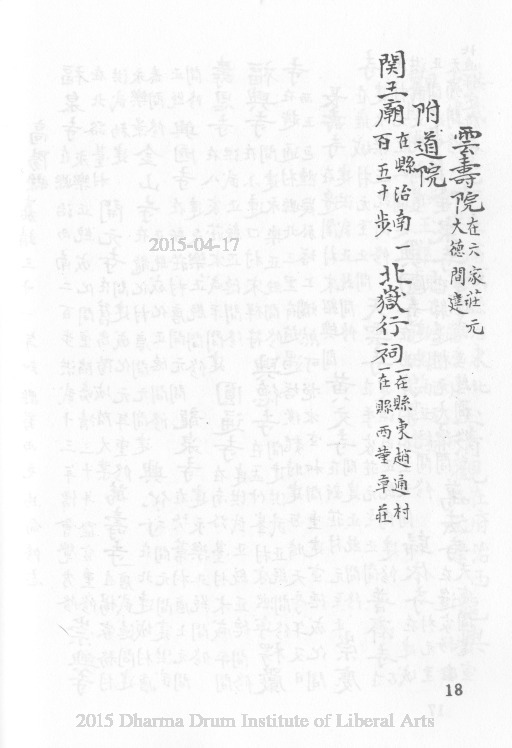 雲壽院在六家莊元大德間建
附道院
関王廟在縣治南一百五十步
北嶽行祠一在縣東趙通村一在縣西董章莊
2015-04-17
18
2015 Dharma Drum Institute of Liberal Arts